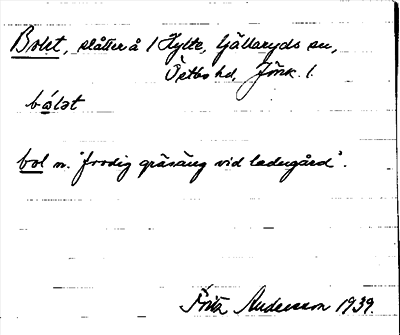 Bolet, slåtter å 1 Hylte, Gällaryds sn,
Östbo hd, Jönk. l.
bólət
bol n. "frodig gräsäng vid ladugård".
Fritz Andersson 1939.